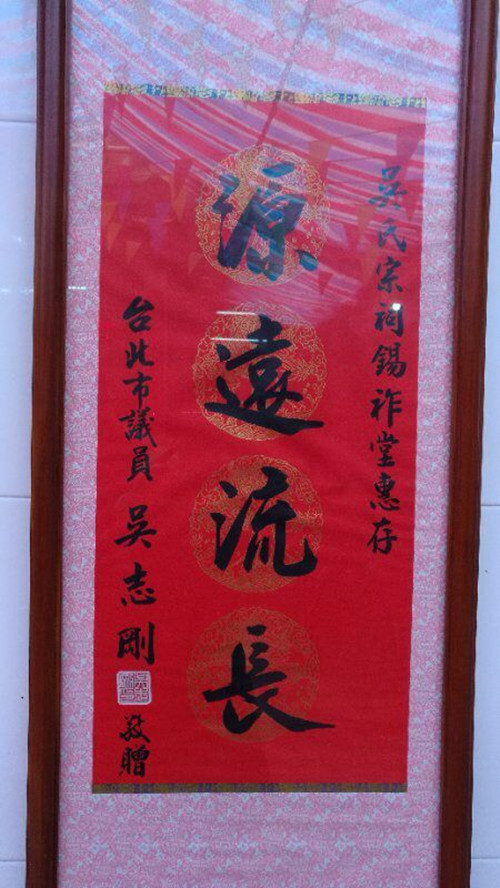 吳氏宗祠錫祚堂惠存
源遠流長
台北市議員 吳志剛 敬贈